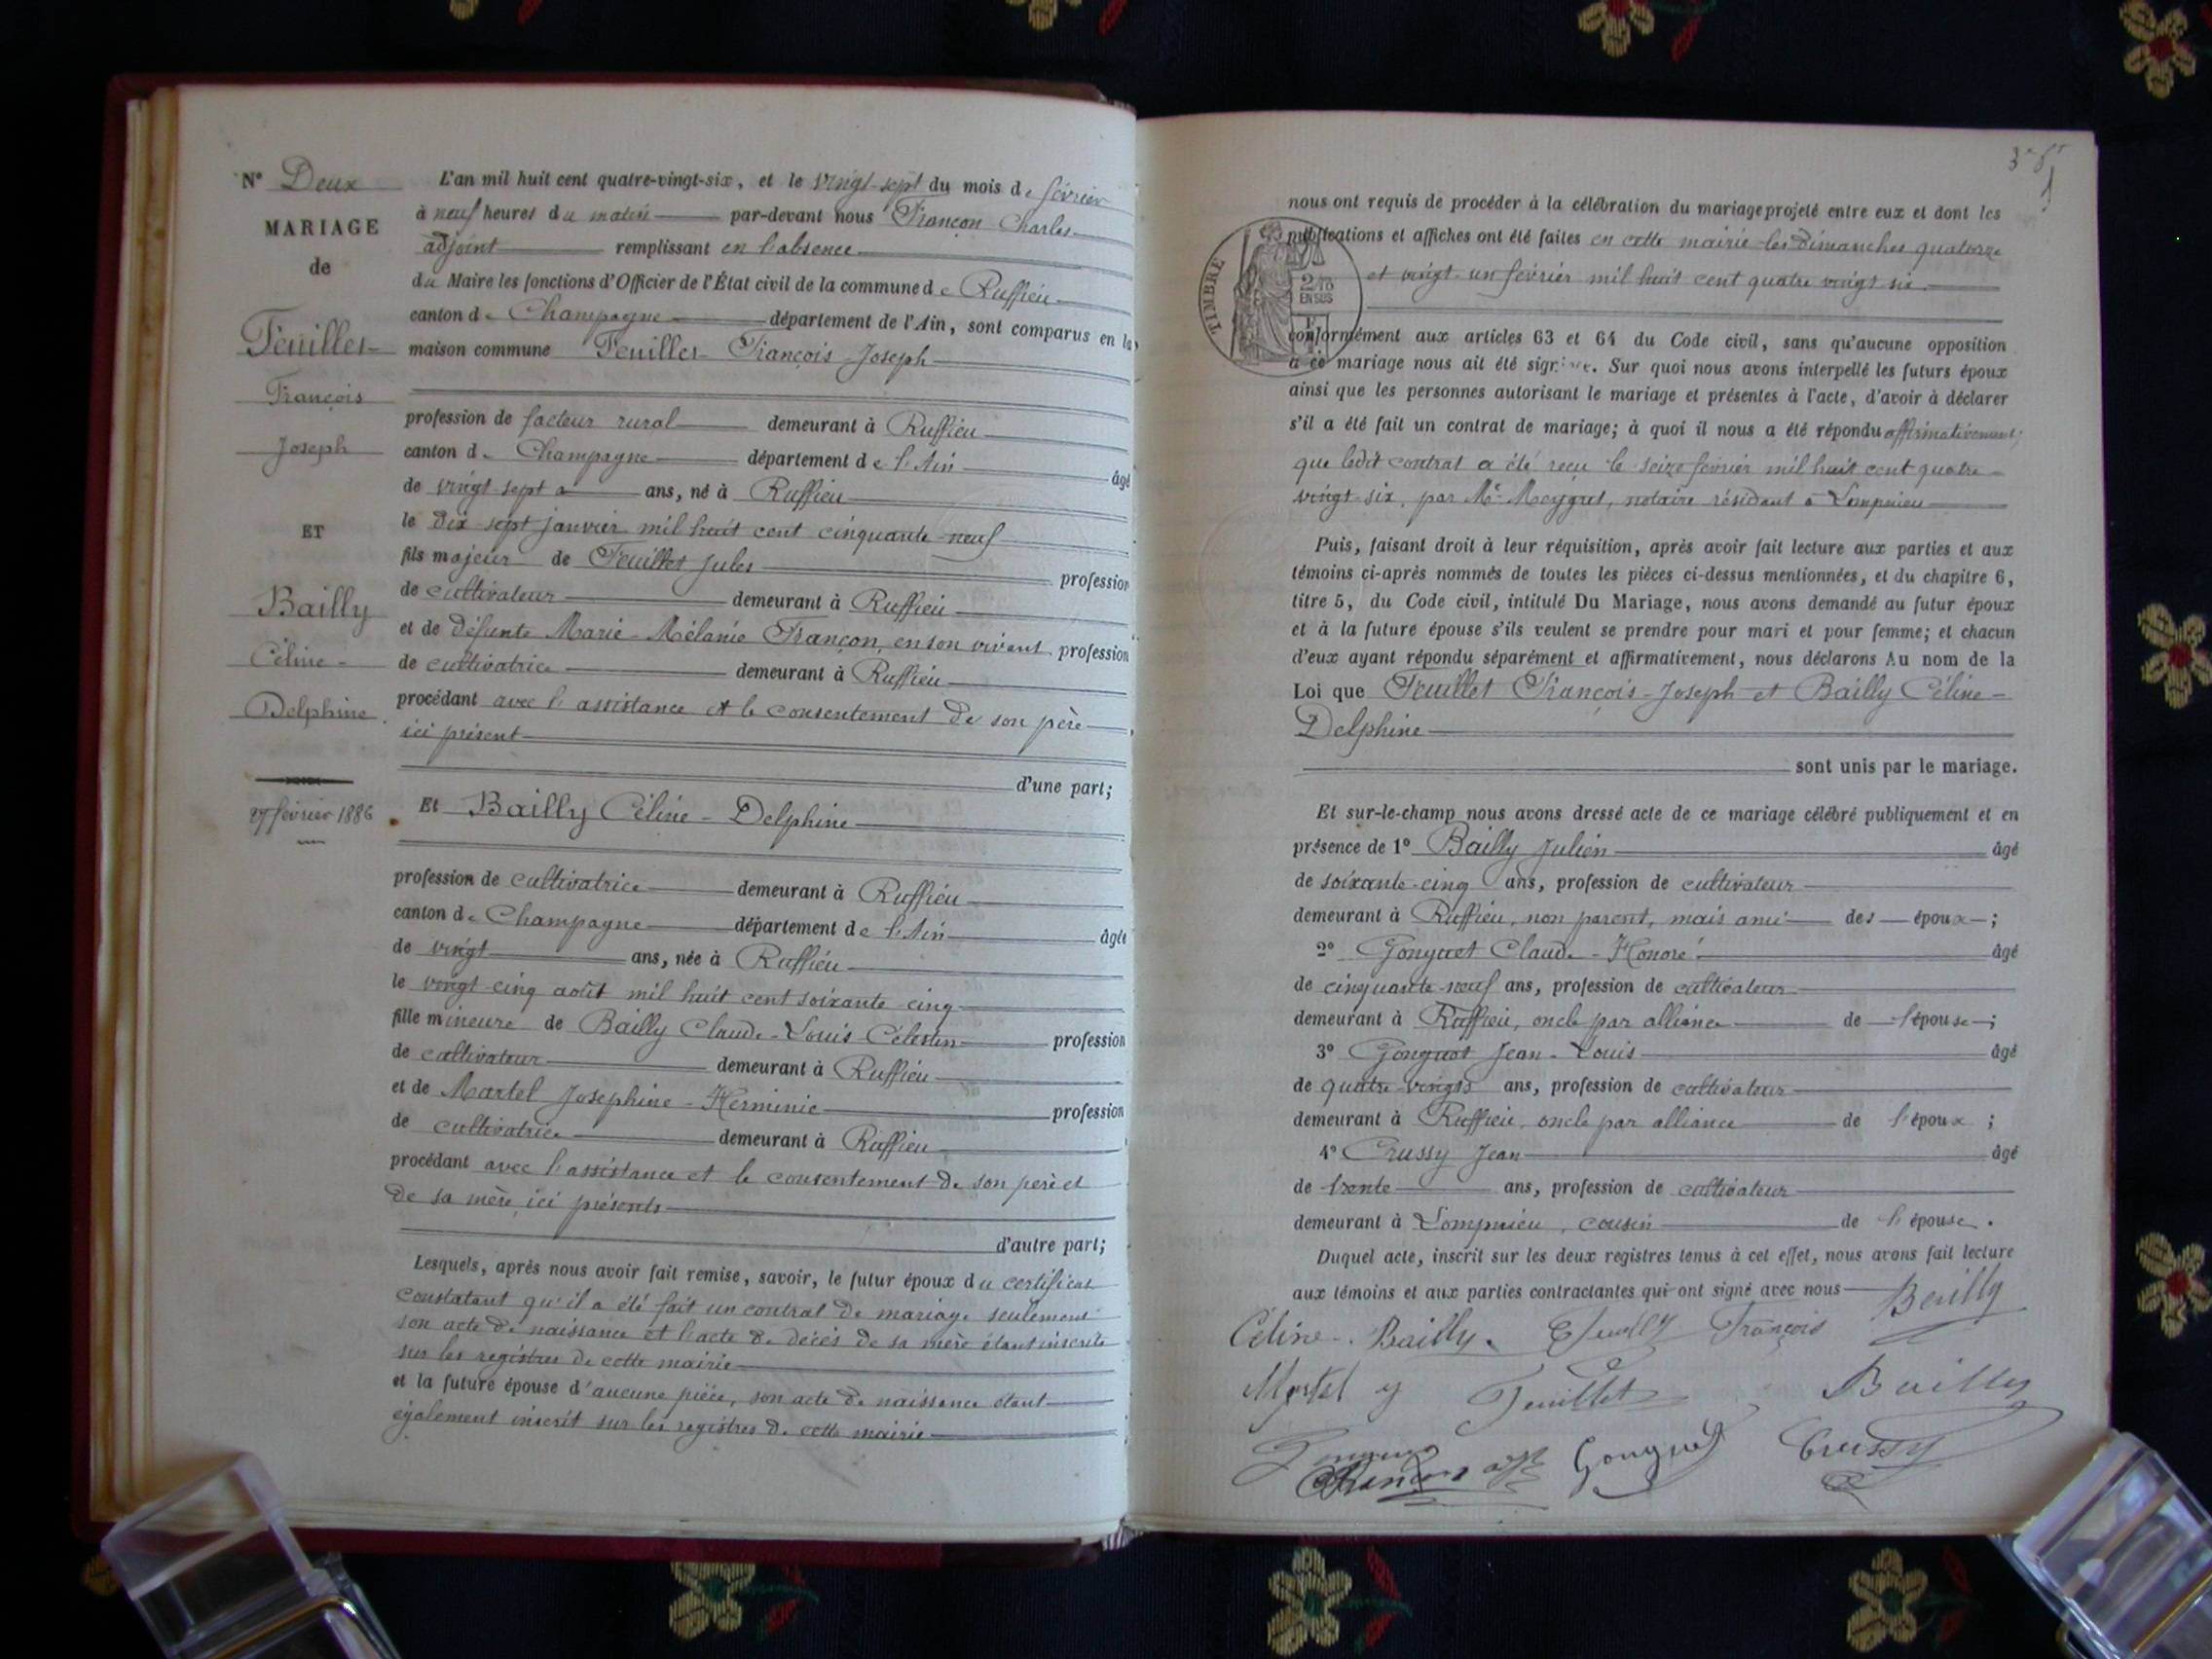 N° Deux
MARIAGE
de
Feuillet
François
Joseph
ET
Bailly
Céline-
Delphine
27 février 1886
L'an mil huit cent quatre-vingt-six, et le vingt-sept du mois de février
à neuf heures du matin par-devant nous Françon Charles
adjoint remplissant en l'absence
du Maire les fonctions d'Officier de l'État civil de la commune de Ruffieu
canton de Champagne département de l'Ain, sont comparus en la
maison commune Feuillet François-Joseph
profession de facteur rural demeurant à Ruffieu
canton de Champagne département de l'Ain âgé
de vingt-sept ans, né à Ruffieu
le dix-sept janvier mil huit cent cinquante-neuf
fils majeur de Feuillet Jules profession
de cultivateur demeurant à Ruffieu
et de défunte Marie-Mélanie Françon, en son vivant profession
de cultivatrice demeurant à Ruffieu
procédant avec l'assistance et le consentement de son père
ici présent
d'une part;
Et Bailly Céline-Delphine
profession de cultivatrice demeurant à Ruffieu
canton de Champagne département de l'Ain âgée
de vingt ans, née à Ruffieu
le vingt-cinq août mil huit cent soixante-cinq
fille mineure de Bailly Claude-Louis-Célestin profession
de cultivateur demeurant à Ruffieu
et de Martel Josephine-Herminie profession
de cultivatrice demeurant à Ruffieu
procédant avec l'assistance et le consentement de son père et
de sa mère, ici présents
d'autre part;
Lesquels, après nous avoir fait remise, savoir, le futur époux du certificat
constatant qu'il a été fait un contrat de mariage seulement
son acte de naissance et l'acte de décès de sa mère étant inscrits
sur les registres de cette mairie
et la future épouse d'aucune pièce, son acte de naissance étant
également inscrit sur les registres de cette mairie
nous ont requis de procéder à la célébration du mariage projeté entre eux et dont les
publications et affiches ont été faites en cette mairie les dimanches quatorze
et vingt-un février mil huit cent quatre vingt six
TIMBRE
2/10
EN SUS
conformément aux articles 63 et 64 du Code civil, sans qu'aucune opposition
à ce mariage nous ait été signifiée. Sur quoi nous avons interpellé les futurs époux
ainsi que les personnes autorisant le mariage et présentes à l'acte, d'avoir à déclarer
s'il a été fait un contrat de mariage; à quoi il nous a été répondu affirmativement;
que ledit contrat a été reçu le seize février mil huit cent quatre-
vingt-six, par Me Meygret, notaire résidant à Lompnieu
Puis, faisant droit à leur réquisition, après avoir fait lecture aux parties et aux
témoins ci-après nommés de toutes les pièces ci-dessus mentionnées, et du chapitre 6,
titre 5, du Code civil, intitulé Du Mariage, nous avons demandé au futur époux
et à la future épouse s'ils veulent se prendre pour mari et pour femme; et chacun
d'eux ayant répondu séparément et affirmativement, nous déclarons Au nom de la
Loi que Feuillet François-Joseph et Bailly Céline-
Delphine
sont unis par le mariage.
Et sur-le-champ nous avons dressé acte de ce mariage célébré publiquement et en
présence de 1° Bailly Julien âgé
de soixante-cinq ans, profession de cultivateur
demeurant à Ruffieu, non parent, mais ami des époux;
2° Gonguet Claude-Honoré âgé
de cinquante-neuf ans, profession de cultivateur
demeurant à Ruffieu, oncle par alliance de l'épouse;
3° Gonguet Jean-Louis âgé
de quatre-vingts ans, profession de cultivateur
demeurant à Ruffieu, oncle par alliance de l'époux;
4° Crussy Jean âgé
de trente ans, profession de cultivateur
demeurant à Lompnieu, cousin de l'épouse.
Duquel acte, inscrit sur les deux registres tenus à cet effet, nous avons fait lecture
aux témoins et aux parties contractantes qui ont signé avec nous Bailly
Céline Bailly François
Martel Feuillet Bailly
Gonguet Crussy